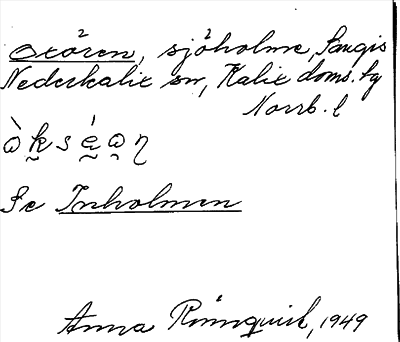 Oxören, sjöholme, Sangis
Nederkalix sn, Kalix doms. bg
Norrb. l
Se Inholmen
Anna Rönnquist, 1949